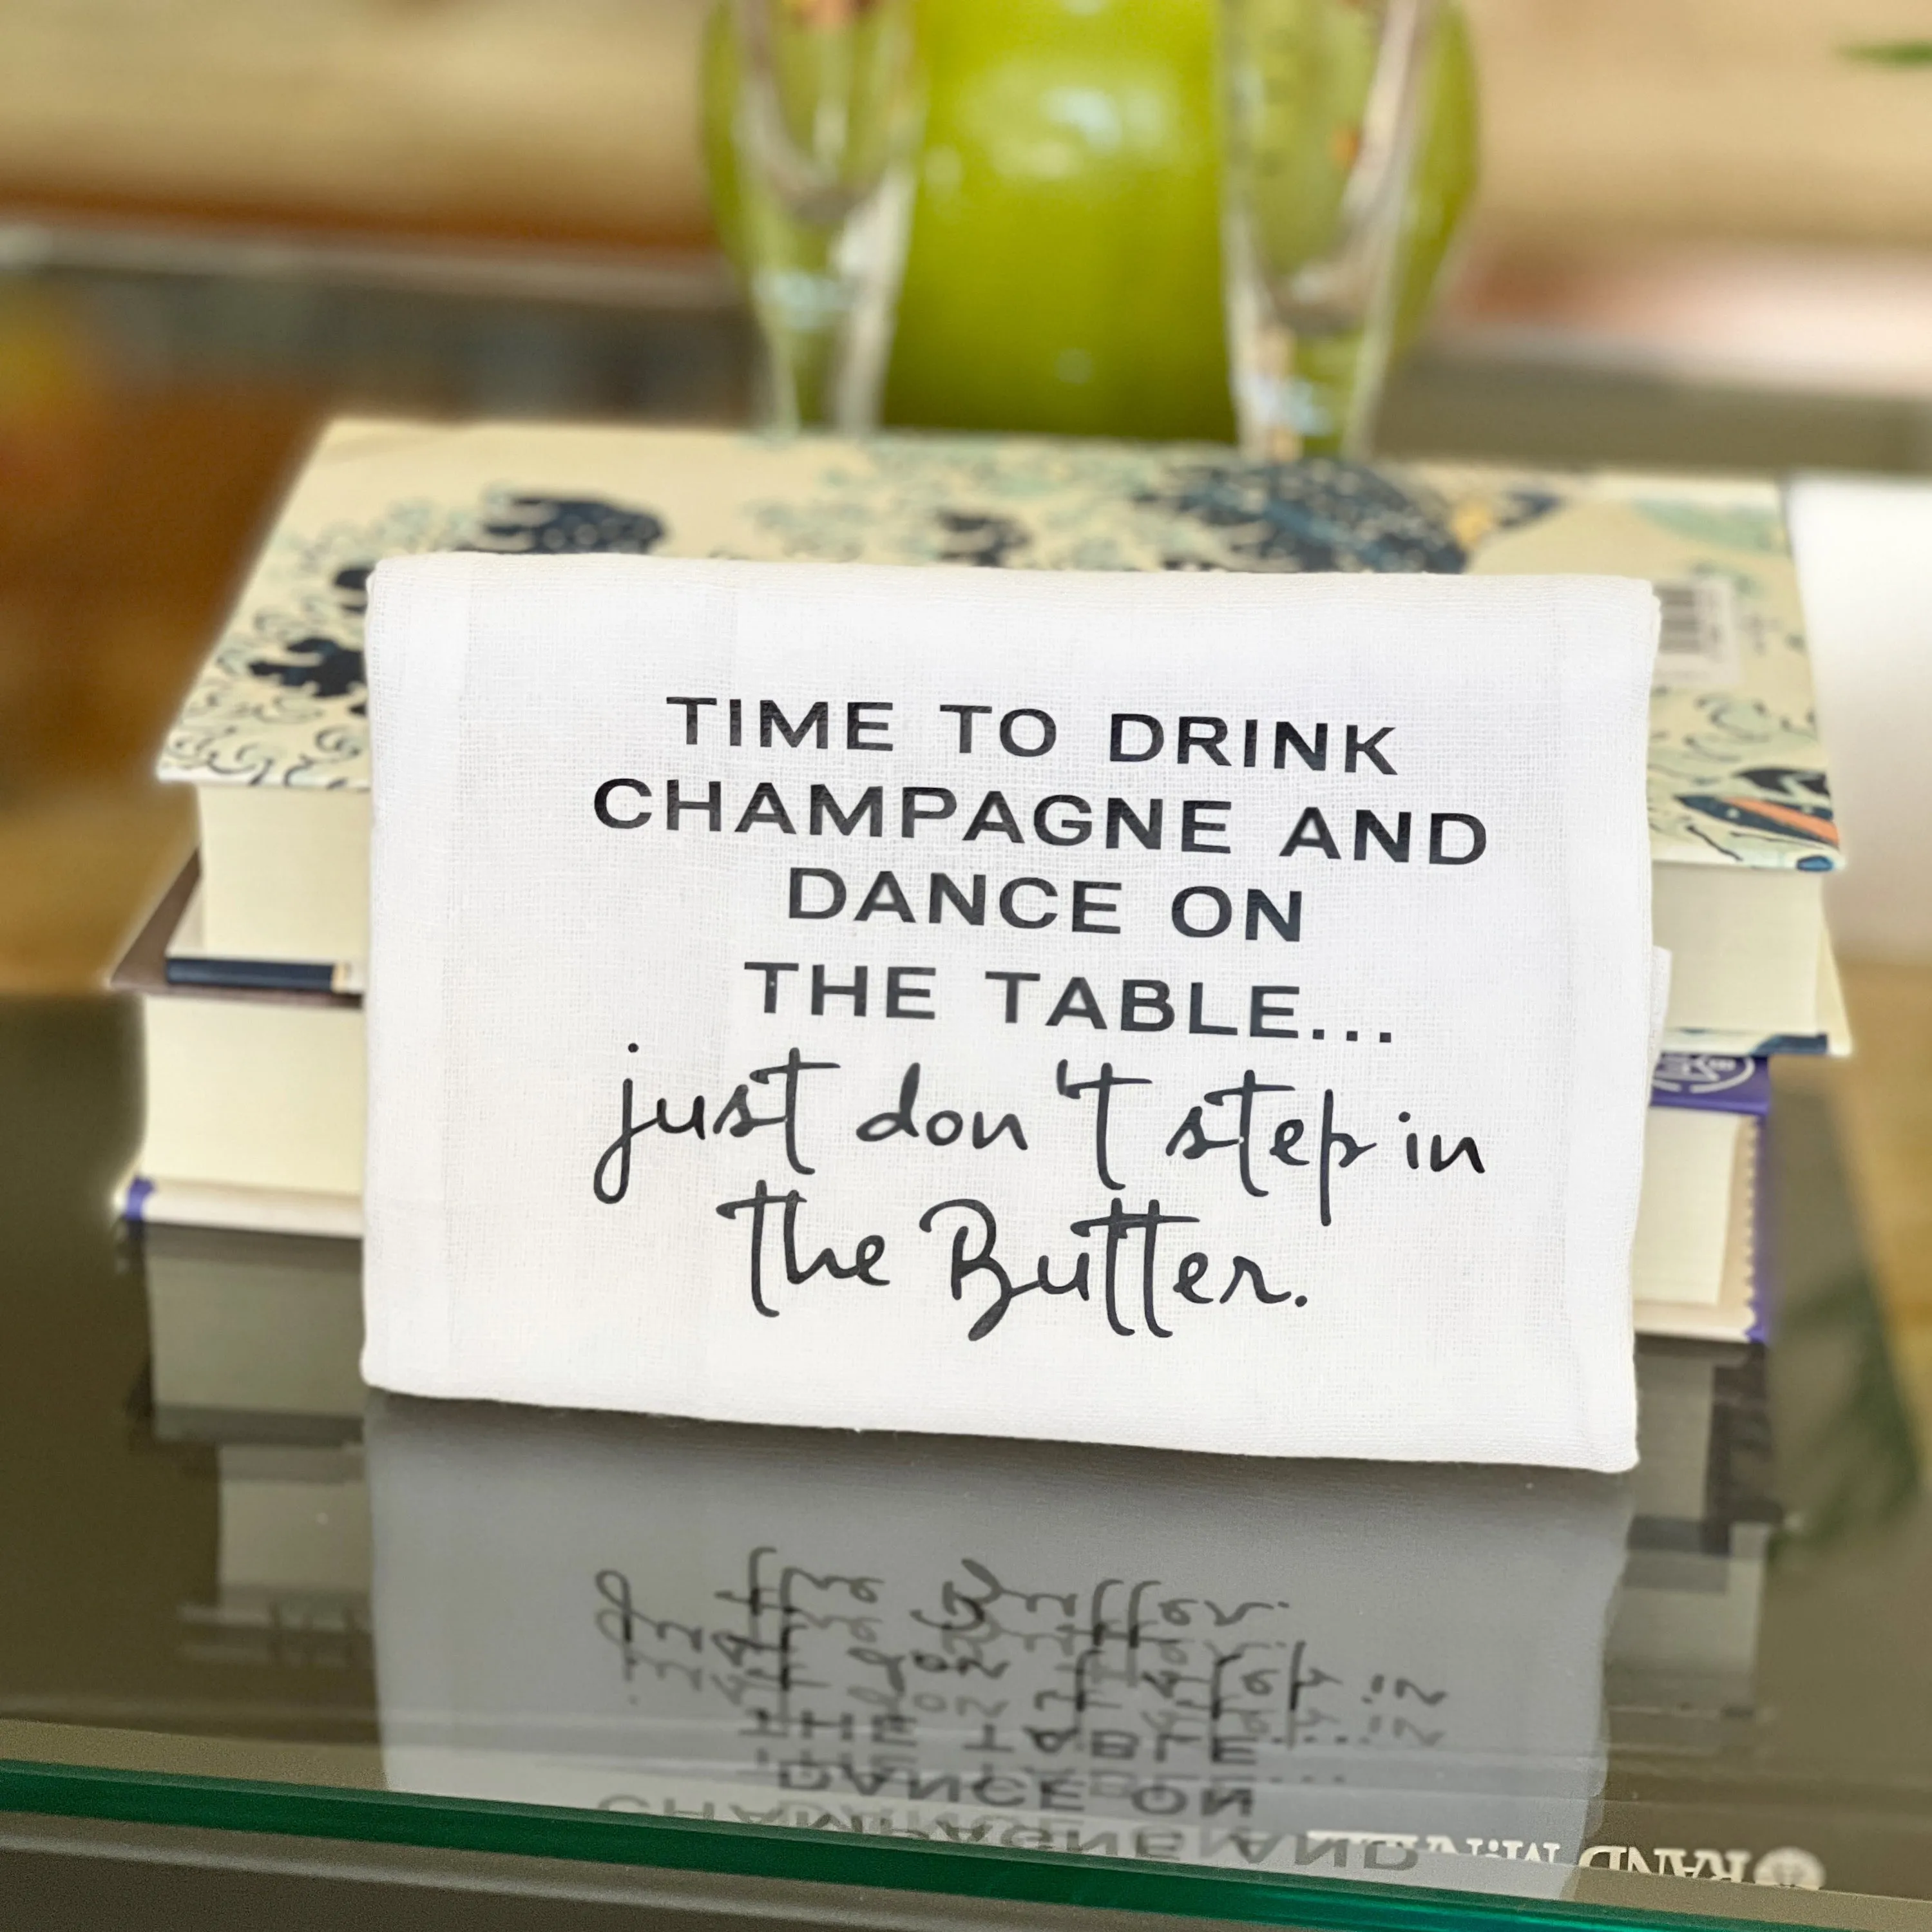 TIME TO DRINK
CHAMPAGNE AND
DANCE ON
THE TABLE...
just don't step in
the Butter.